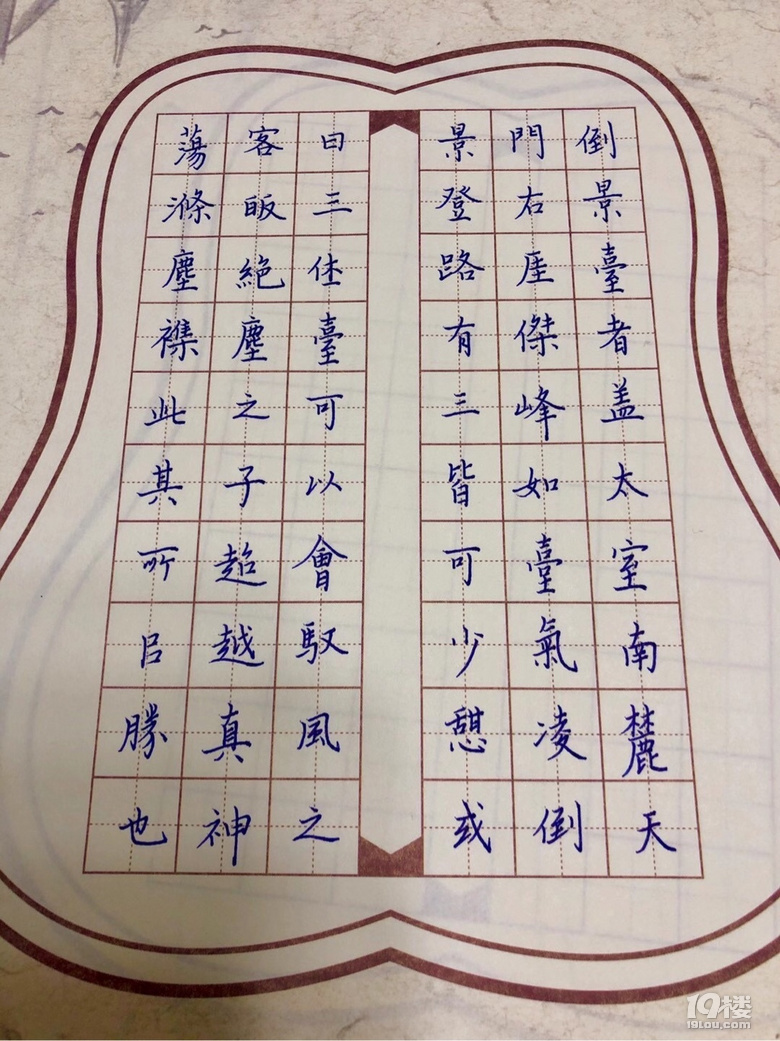 倒景臺者盖太室南麓天
門右崖傑峰如臺氣凌倒
景登路有三皆可少憩或
曰三休臺可以會馭風之
客皈絶塵之子超越真神
蕩滌塵襟此其所㠯勝也
19楼
19lou.com